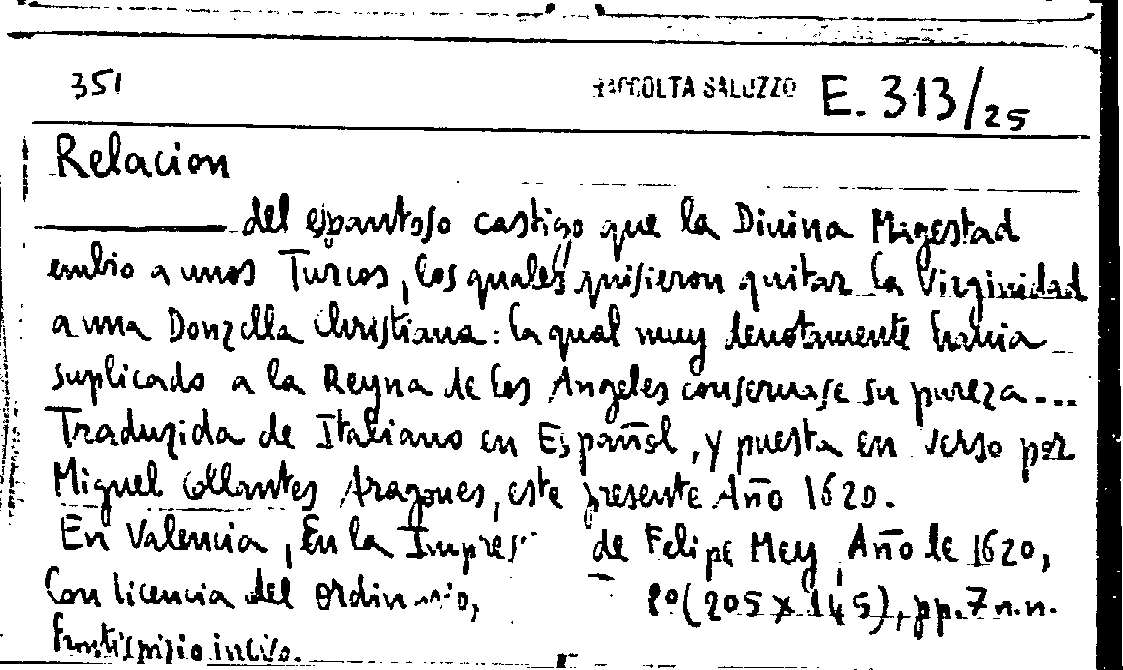 351 RACCOLTA SALUZZO E. 313/25
Relacion
del espantoso castigo que la Diuina Magestad
embio a unos Turcos, los quales quisieron quitar la Virginidad
a una Donzella Christiana: la qual muy deuotamente hauia
suplicado a la Reyna de los Angeles conseruase su pureza...
Traduzida de Italiano en Español, y puesta en verso por
Miguel Collantes Aragones, este presente Año 1620.
En Valencia, En la de Felipe Mey, Año de 1620,
Con licencia del Ordinario, 8º (205 x 145), pp. 7 n.n.
Frontispizio inciso.